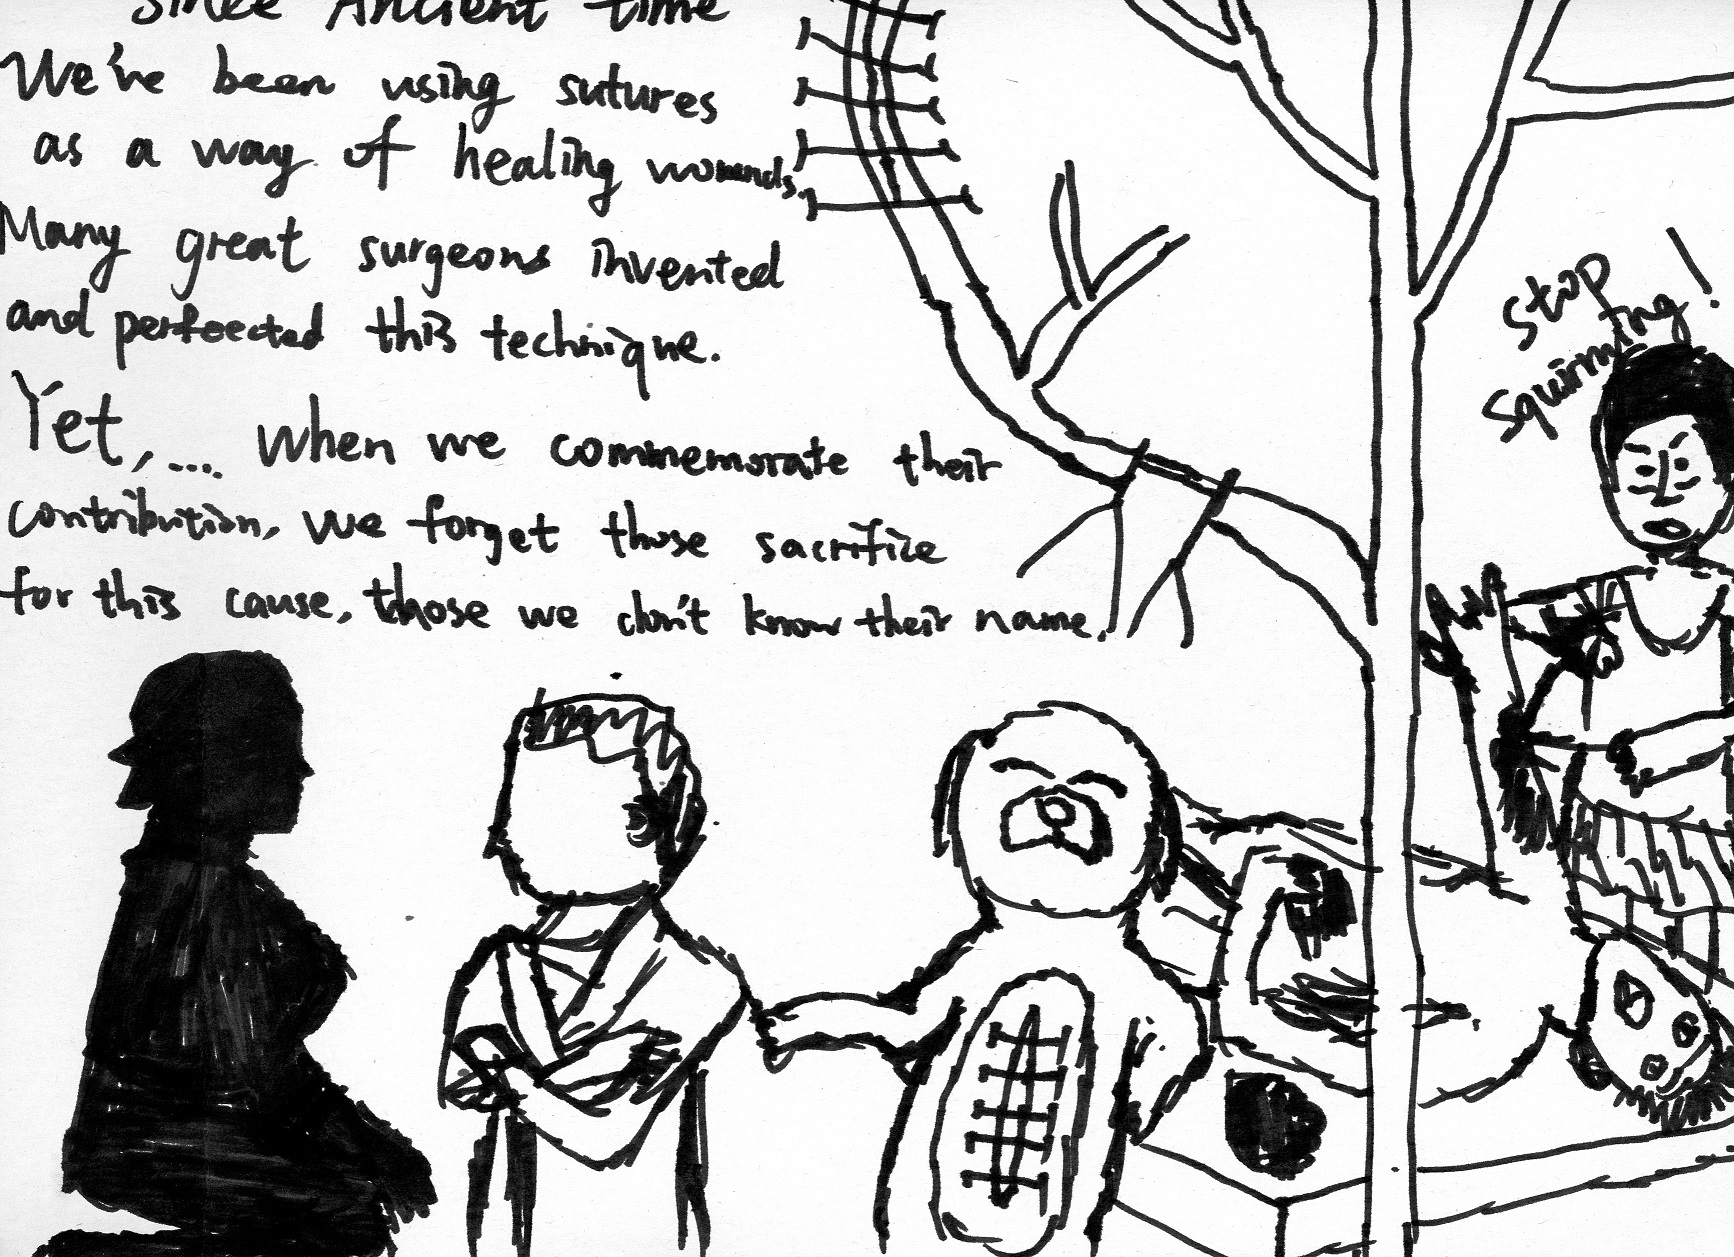 Since Ancient time
We've been using sutures
as a way of healing wounds.
Many great surgeons invented
and perfoected this technique.
Yet, .... when we commemorate their
contribution, we forget those sacrifice
for this cause, those we don't know their name.
Stop
squirming!